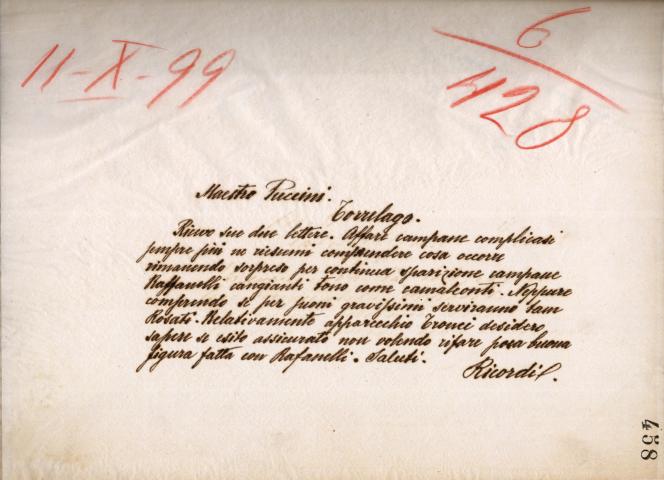 11-X-99
6
428
Maestro Puccini.
Torrelago.
Ricevo sue dose lettere. Affare campane complicasi
sempre più ne riesumi comprendere cosa occorre
rimanendo sorpreso per continua sparizione campane
Raffanelli cangianti tono come camaleonti. Neppure
comprendo se per suoni gravissimi serviranno tam
Rosati. Relativamente apparecchio Tronci desidero
sapere se esito assicurato non volendo rifare poca buona
figura fatta con Rafanelli. Saluti.
Ricordi.
458